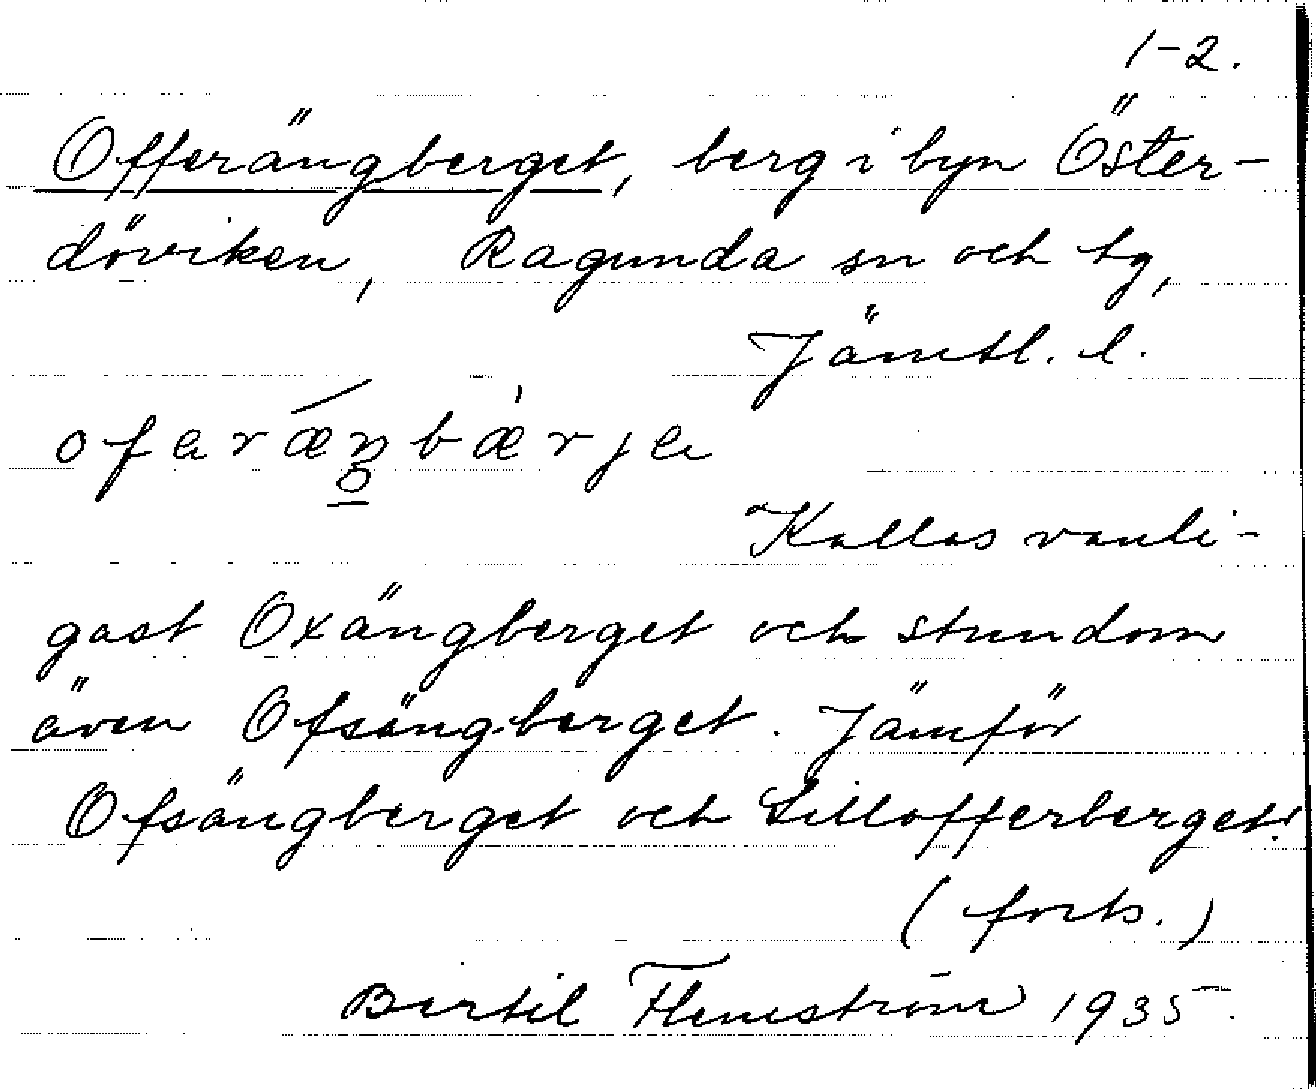 1-2.
Offerängberget, berg i byn Öster-
döviken, Ragunda sn och tg,
Jämtl. l.
Kallas vanli-
gast Oxängberget och stundom
även Ofsängberget. Jämför
Ofsängberget och Lillofferberget!
(forts.)
Bertil Flemström 1935.